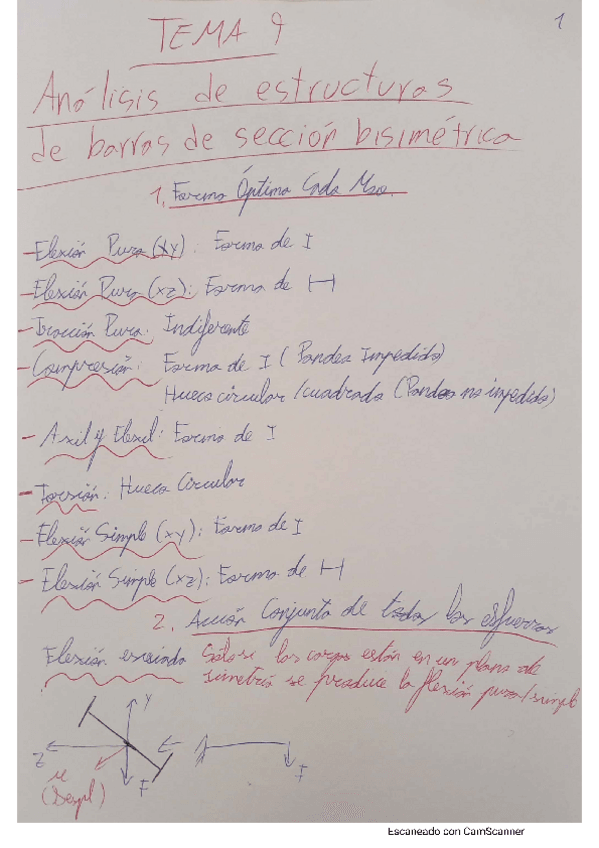 1
TEMA 9
Análisis de estructuras
de barras de sección bisimétrica
1. Forma Óptima Cada Mza.
- Flexión Pura (xy): Forma de I
- Flexión Pura (xz): Forma de H
- Tracción Pura: Indiferente
- Compresión: Forma de I (Pandeo Impedido)
Hueca circular / cuadrada (Pandeo no impedido)
- Axil y Flexil: Forma de I
- Torsión: Hueca Circular
- Flexión Simple (xy): Forma de I
- Flexión Simple (xz): Forma de H
2. Acción Conjunta de todos los esfuerzos
Flexión esviada Sólo si las cargas están en un plano de
simetría se produce la flexión pura/simple
Y
Z
u
(Despl)
F
F
Escaneado con CamScanner